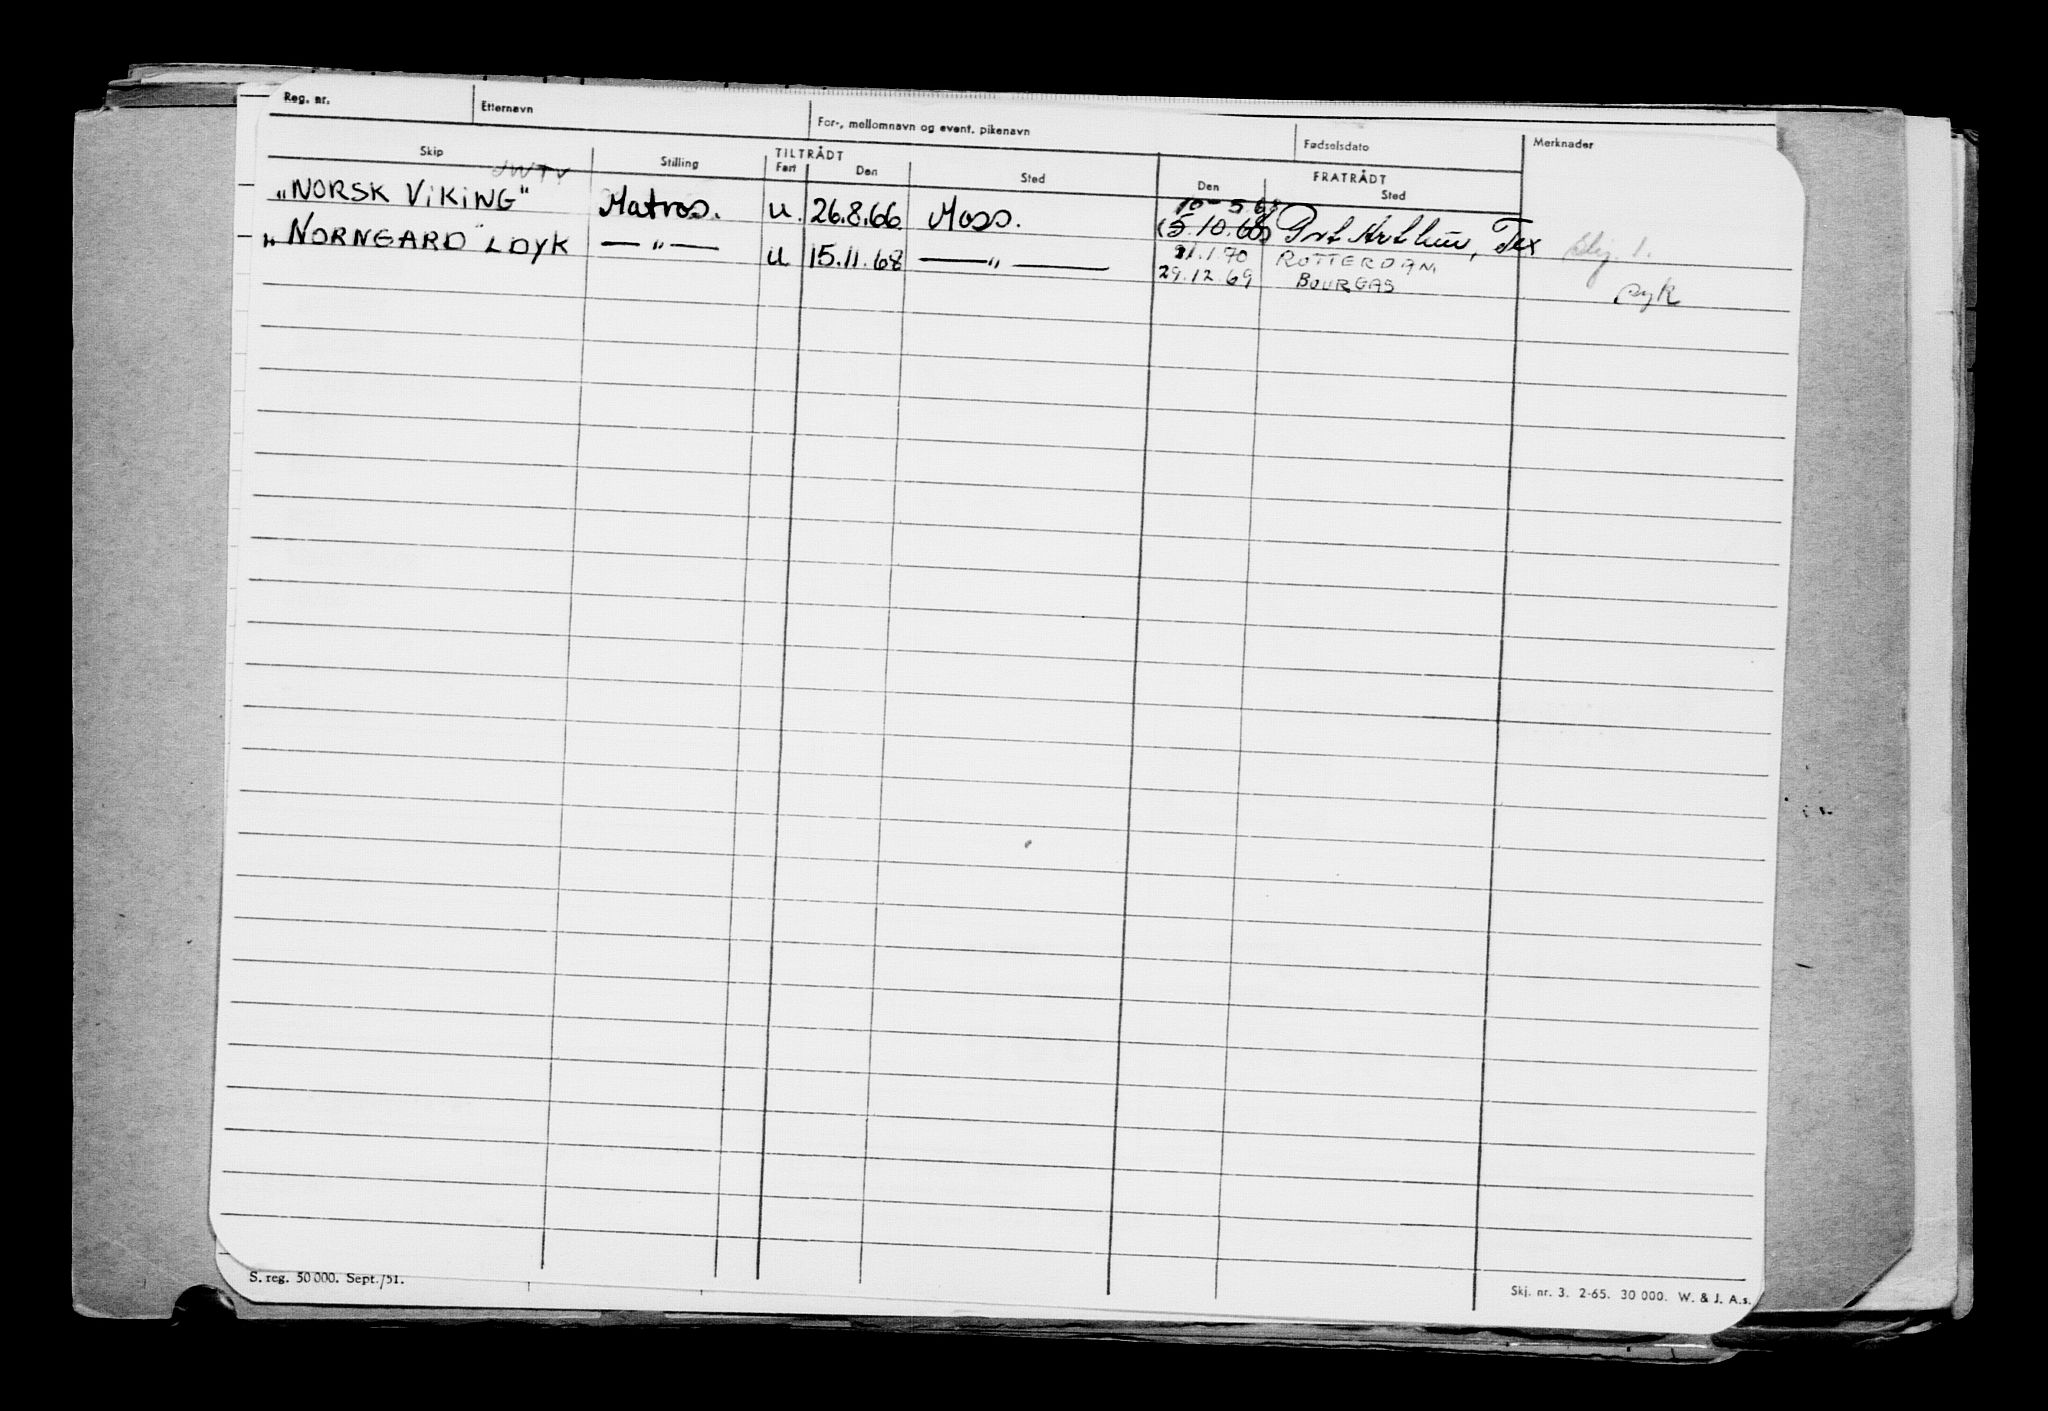 Reg. nr. Etternavn For-, mellomnavn og event. pikenavn Fødselsdato Merknader
Skip Stilling TILTRÅDT Fart Den Sted FRATRÅDT Den Sted
JWTV
10-5 68
„NORSK ViKiNG" Matros. u. 26.8.66 Moss. (5.10.68) Port Arthur, Tex
„NORNGARD" LDYK — " — u 15.11.68 — " — 21.1.70 ROTTERDAM
29.12.69 BOURGAS syk
S. reg. 50 000. Sept./51.
Skj. nr. 3. 2-65. 30 000. W. & J. A.s.